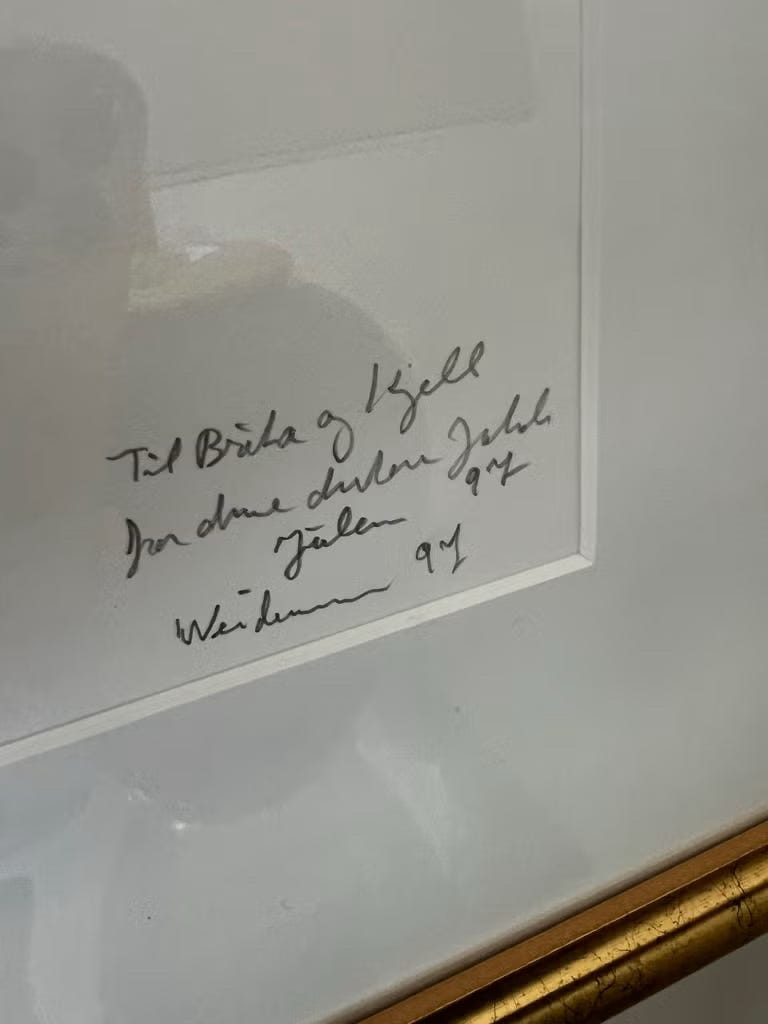 Til Brita og Kjell
fra dine Jakob
Julen 97
Weidemann 97